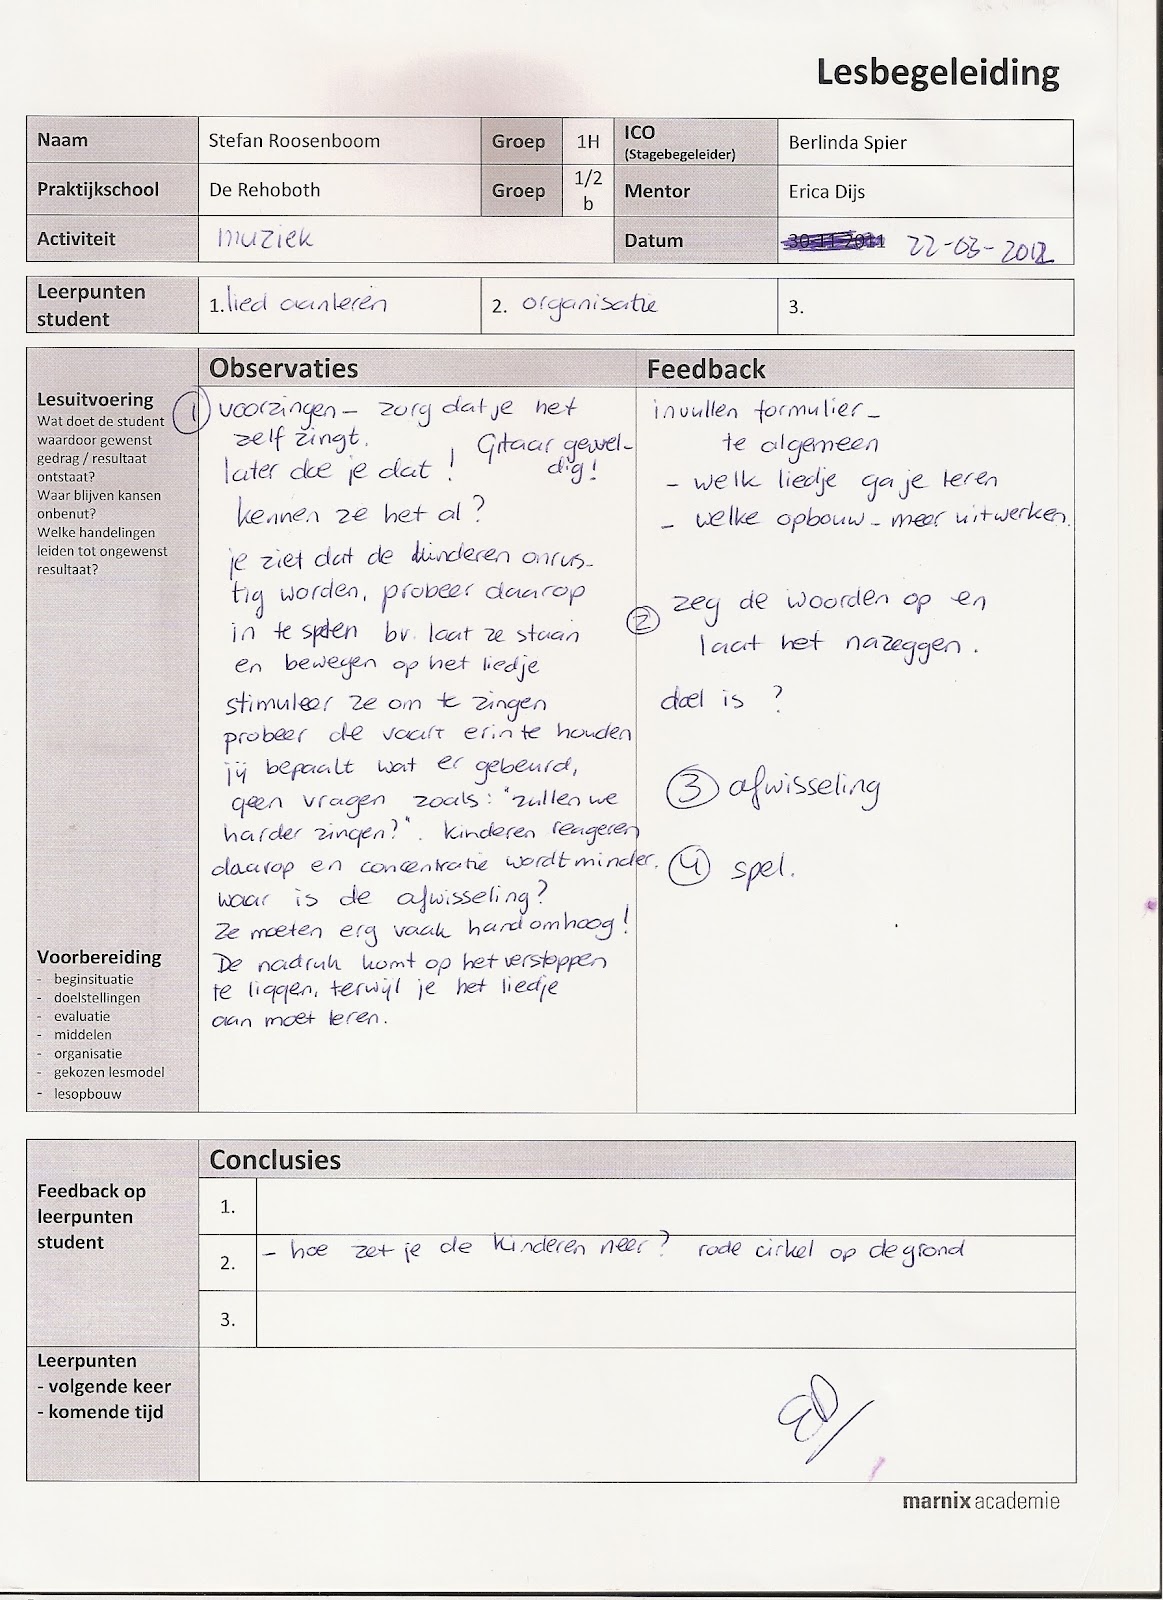 Lesbegeleiding
Naam Stefan Roosenboom Groep 1H ICO (Stagebegeleider) Berlinda Spier
Praktijkschool De Rehoboth Groep 1/2 b Mentor Erica Dijs
Activiteit muziek Datum 30-11-2011 22-03-2012
Leerpunten student 1. lied aanleren 2. organisatie 3.
Observaties
Feedback
Lesuitvoering
Wat doet de student
waardoor gewenst
gedrag / resultaat
ontstaat?
Waar blijven kansen
onbenut?
Welke handelingen
leiden tot ongewenst
resultaat?
Voorbereiding
- beginsituatie
- doelstellingen
- evaluatie
- middelen
- organisatie
- gekozen lesmodel
- lesopbouw
1 voorzingen - zorg dat je het
zelf zingt.
later doe je dat! Gitaar gewel-
dig!
kennen ze het al?
je ziet dat de kinderen onrus-
tig worden, probeer daarop
in te spelen bv. laat ze staan
en bewegen op het liedje
stimuleer ze om te zingen
probeer de vaart erin te houden
jij bepaalt wat er gebeurd,
geen vragen zoals: "zullen we
harder zingen?". kinderen reageren
daarop en concentratie wordt minder.
waar is de afwisseling?
Ze moeten erg vaak hand omhoog!
De nadruk komt op het verstoppen
te liggen, terwijl je het liedje
aan moet leren.
invullen formulier -
te algemeen
- welk liedje ga je leren
- welke opbouw - meer uitwerken.
2 zeg de woorden op en
laat het nazeggen.
doel is ?
3 afwisseling
4 spel.
Conclusies
Feedback op
leerpunten
student
1.
2. - hoe zet je de kinderen neer? rode cirkel op de grond
3.
Leerpunten
- volgende keer
- komende tijd
ED
marnix academie